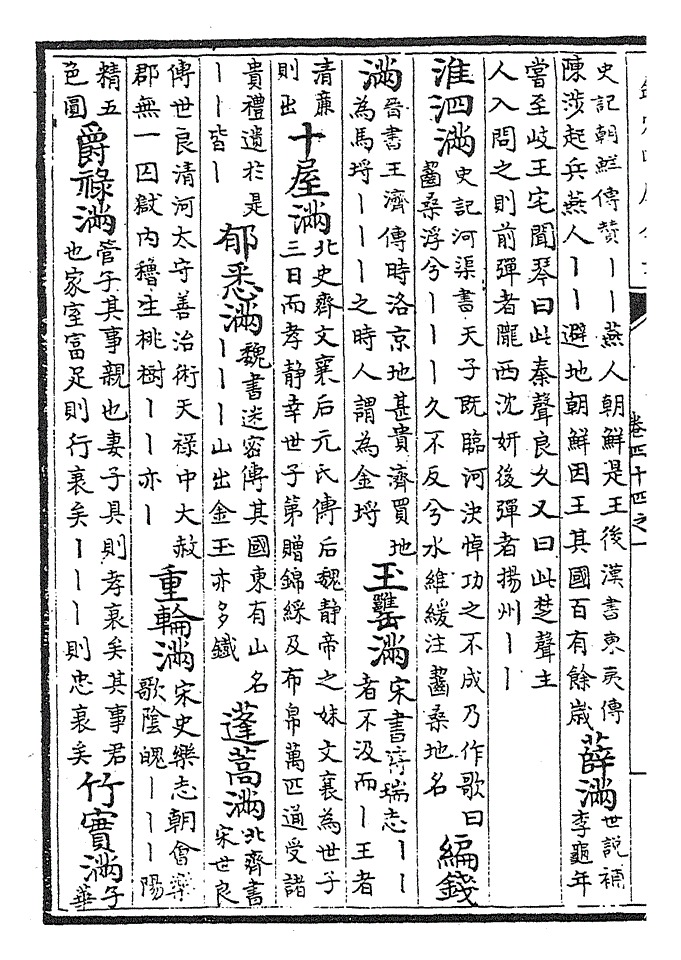 卷四十四之一
史記朝鮮傳贊｜｜燕人朝鮮是王後漢書東夷傳
陳涉起兵燕人｜｜避地朝鮮因王其國百有餘歳
薛滿
世說補
李龜年
嘗至岐王宅聞琴曰此秦聲良久又曰此楚聲主
人入問之則前彈者隴西沈妍後彈者揚州｜｜
淮泗滿
史記河渠書天子既臨河決悼功之不成乃作歌曰
齧桑浮兮｜｜｜久不反兮水維緩注齧桑地名
編錢
滿
晉書王濟傳時洛京地甚貴濟買地
為馬埒｜｜｜之時人謂為金埒
玉罋滿
宋書符瑞志｜｜
者不汲而｜王者
清亷
則出
十屋滿
北史齊文襄后元氏傳后魏静帝之妹文襄為世子
三日而孝静幸世子第贈錦綵及布帛萬匹逎受諸
貴禮遺於是
｜｜皆｜
郁悉滿
魏書迷密傳其國東有山名
｜｜｜山出金玉亦多鐵
蓬蒿滿
北齊書
宋世良
傳世良清河太守善治術天禄中大赦
郡無一囚獄内穭生桃樹｜｜亦｜
重輪滿
宋史樂志朝會樂
歌陰魄｜｜｜陽
精五
色圓
爵祿滿
管子其事親也妻子具則孝衰矣其事君
也家室富足則行衰矣｜｜｜則忠衰矣
竹實滿
子
華